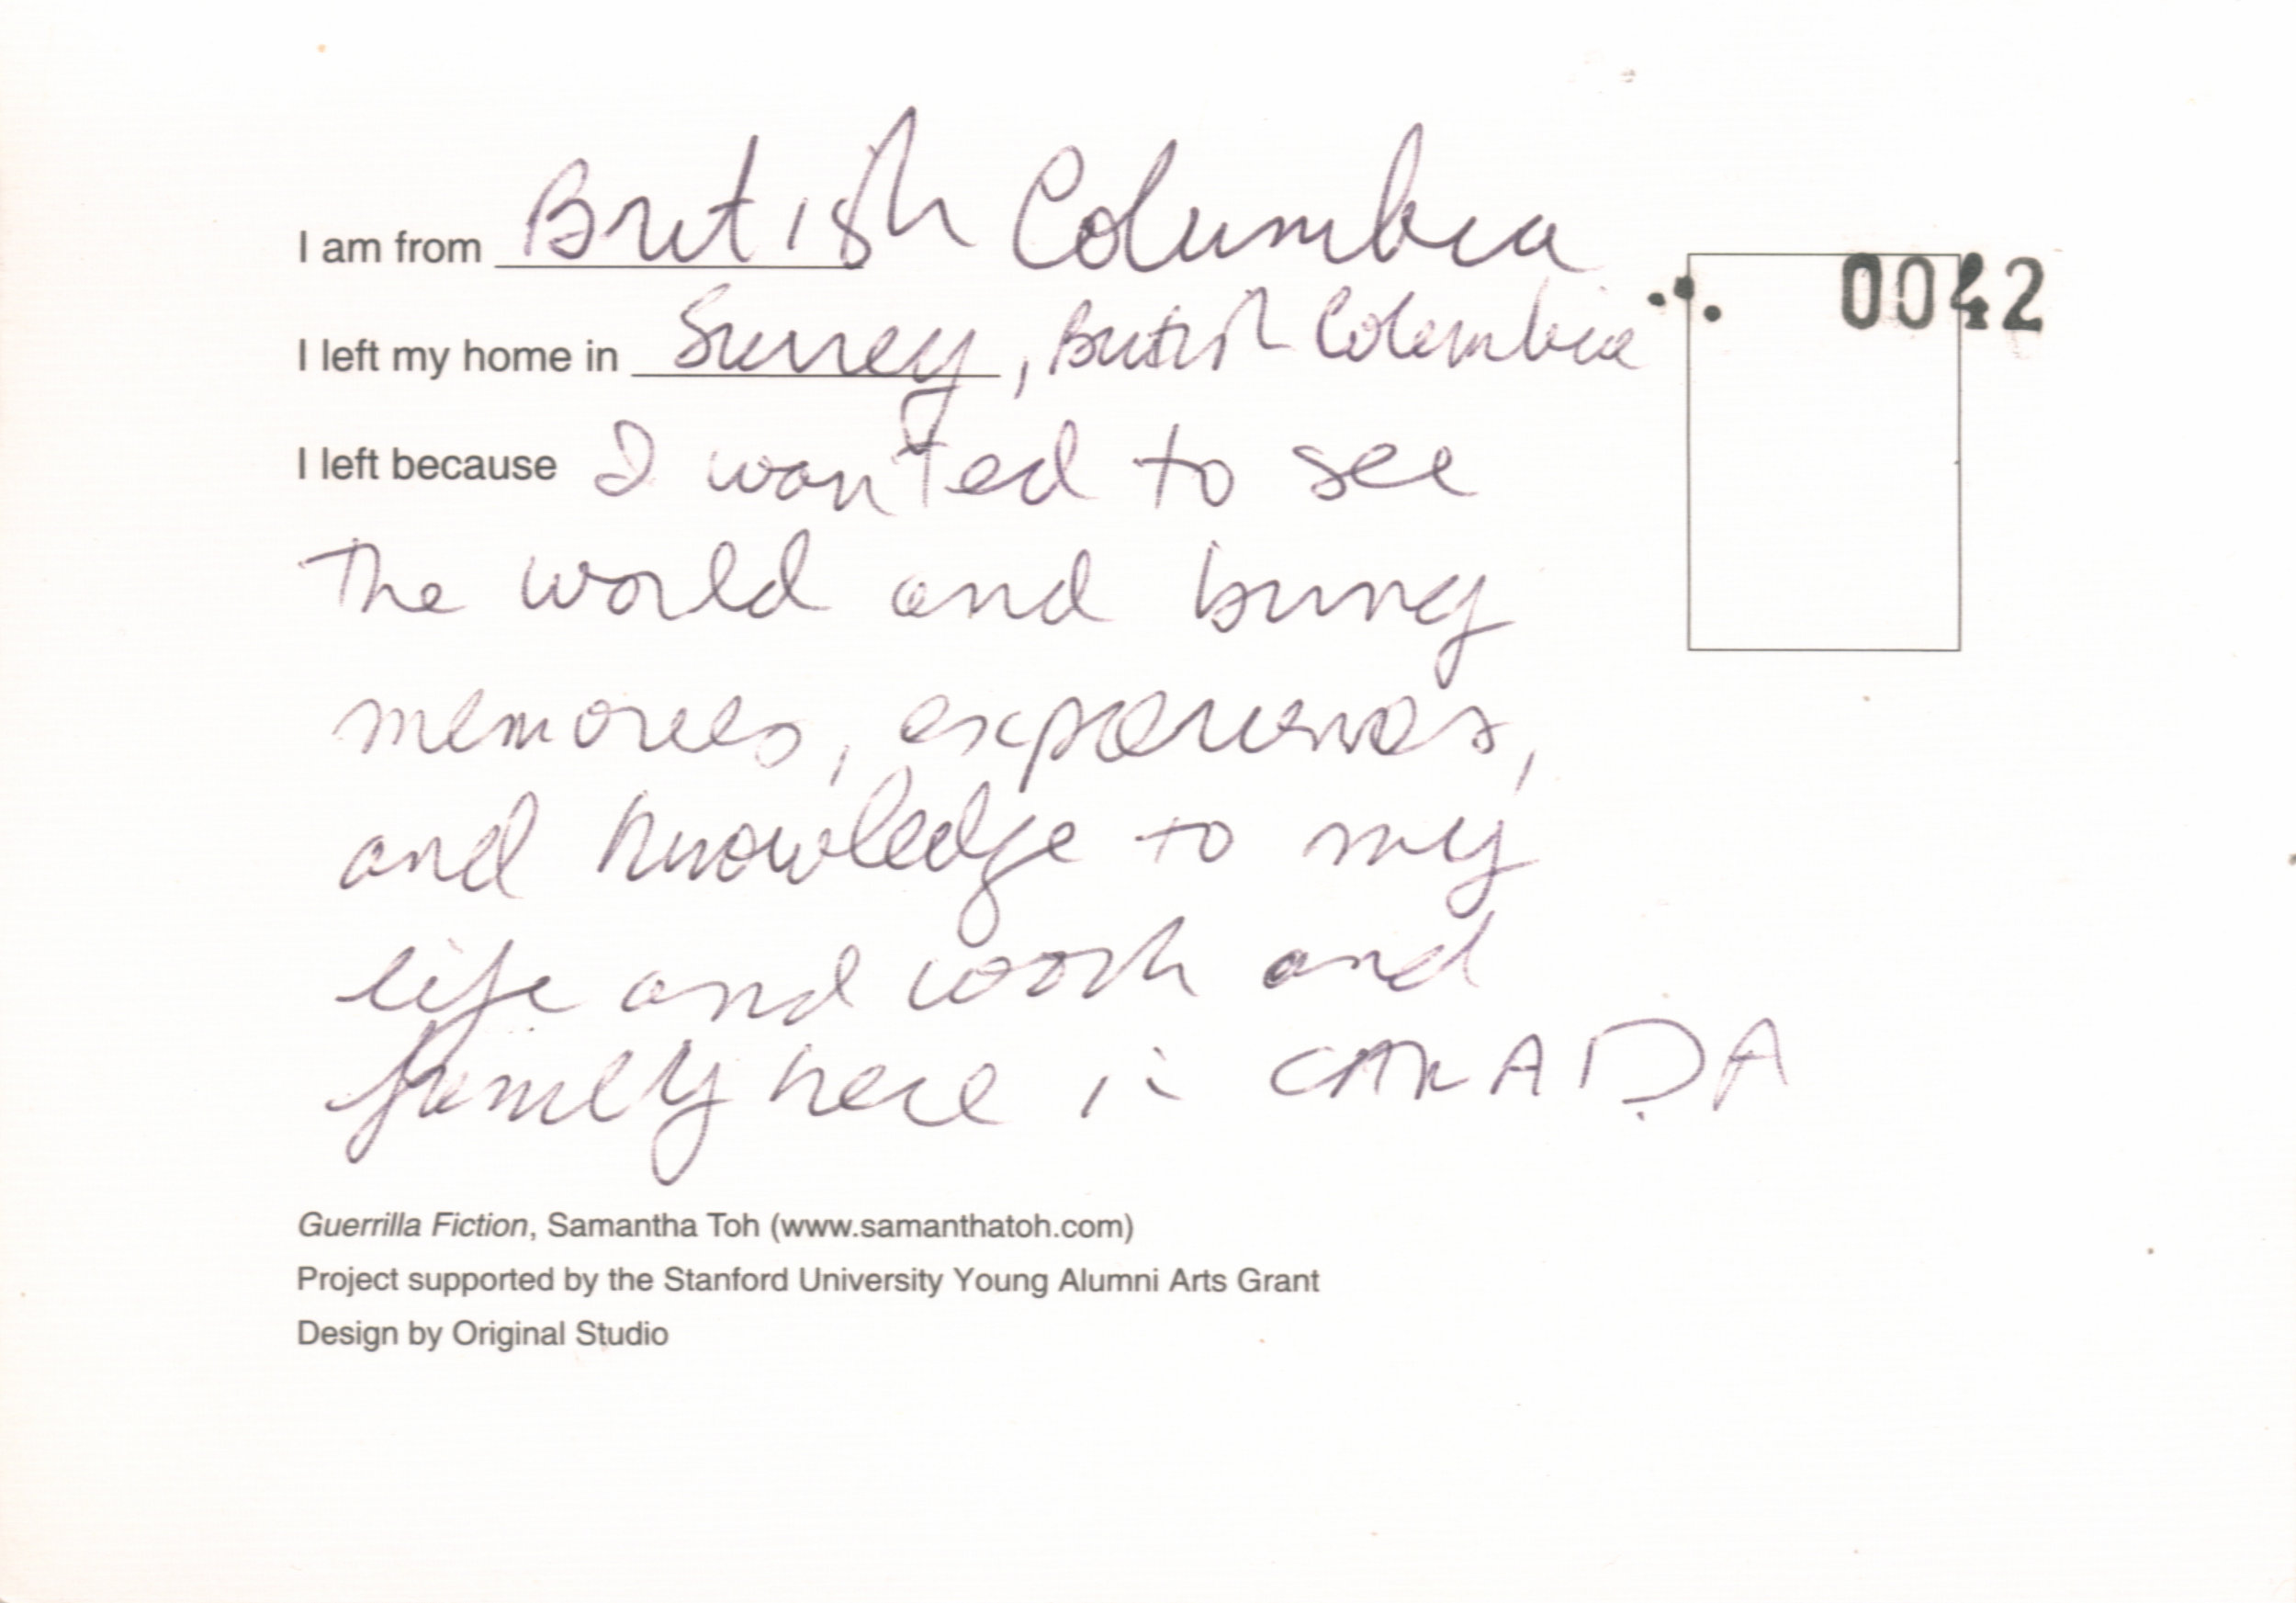 I am from British Columbia
0042
I left my home in Surrey, British Columbia
I left because I wanted to see
the world and bring
memories, experiences,
and knowledge to my
life and work and
family here in CANADA
Guerrilla Fiction, Samantha Toh (www.samanthatoh.com)
Project supported by the Stanford University Young Alumni Arts Grant
Design by Original Studio